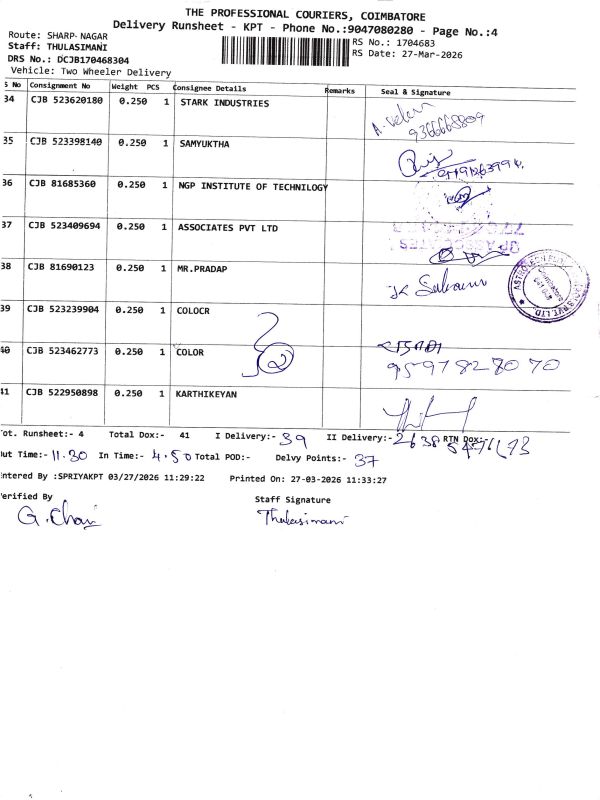 THE PROFESSIONAL COURIERS, COIMBATORE
Delivery Runsheet - KPT - Phone No.:9047080280 - Page No.:4
Route: SHARP-NAGAR
Staff: THULASIMANI
DRS No.: DCJB170468304
Vehicle: Two Wheeler Delivery
RS No.: 1704683
RS Date: 27-Mar-2026
S No Consignment No Weight PCS Consignee Details Remarks Seal & Signature
34 CJB 523620180 0.250 1 STARK INDUSTRIES
35 CJB 523398140 0.250 1 SAMYUKTHA
36 CJB 81685360 0.250 1 NGP INSTITUTE OF TECHNILOGY
37 CJB 523409694 0.250 1 ASSOCIATES PVT LTD
38 CJB 81690123 0.250 1 MR.PRADAP
39 CJB 523239904 0.250 1 COLOCR
40 CJB 523462773 0.250 1 COLOR
9597828070
41 CJB 522950898 0.250 1 KARTHIKEYAN
ot. Runsheet:- 4 Total Dox:- 41 I Delivery:- 39 II Delivery:- 2 RTN Dox:-
ut Time:- 11.30 In Time:- 4.50 Total POD:- Delvy Points:- 37
ntered By :SPRIYAKPT 03/27/2026 11:29:22 Printed On: 27-03-2026 11:33:27
erified By Staff Signature
Thulasimani